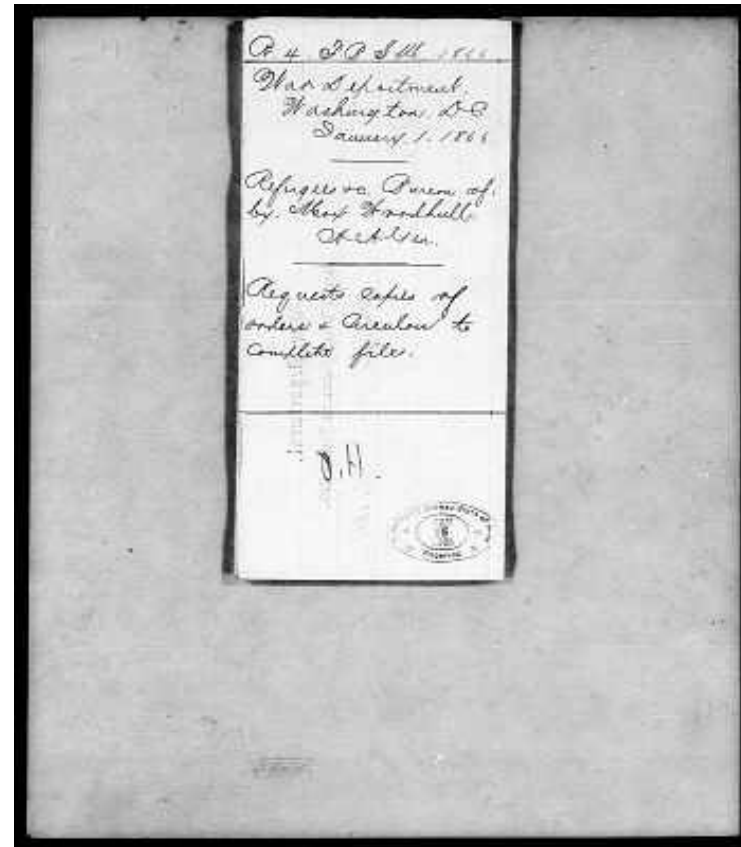 R 4 1866
War Department,
Washington, D C
January 1. 1866
Refugees &c. Bureau of.
by. Max Woodhull
A.A.Gen.
Requests copies of
orders & Circulars to
complete file.
O.H.